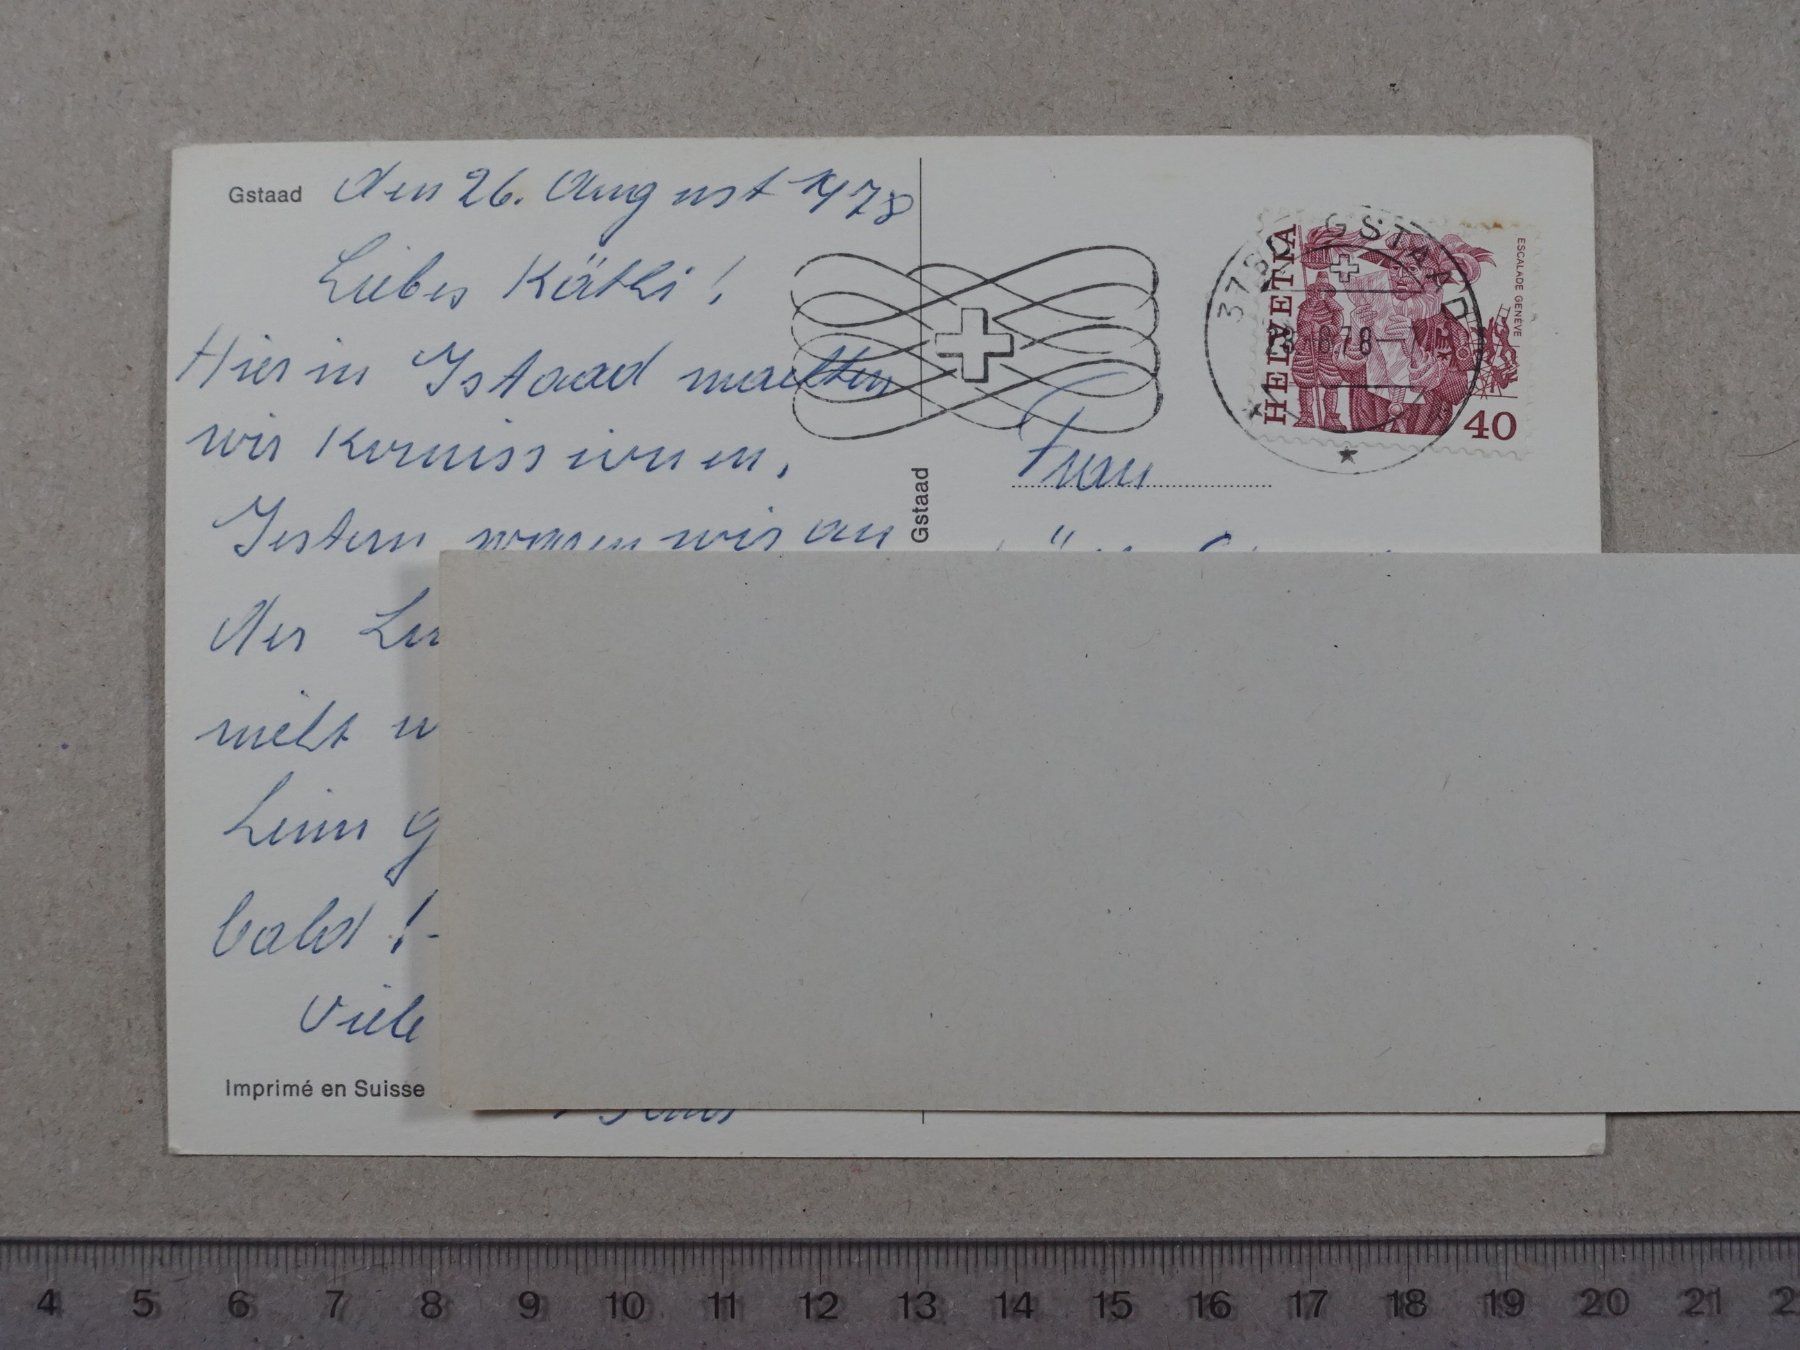 Gstaad den 26. August 1978
Liebes Käthi!
Hier in Gstaad machten
wir Kommissionen.
Gestern waren wir an
der
nicht
bald!-
Viele
Imprimé en Suisse
Gstaad
GSTAAD
HELVETIA
ESCALADE GENÈVE
40
Frau
4 5 6 7 8 9 10 11 12 13 14 15 16 17 18 19 20 21